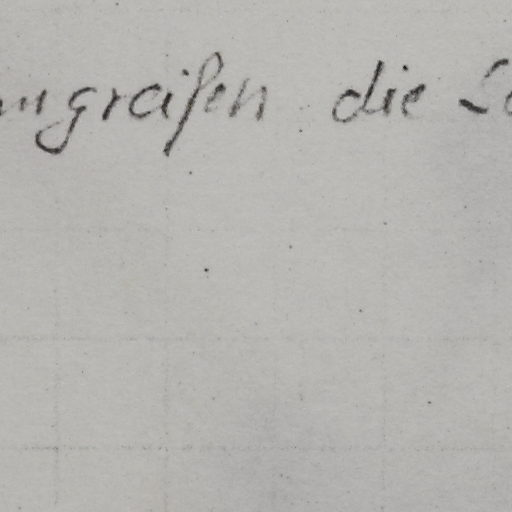 umgreifen die